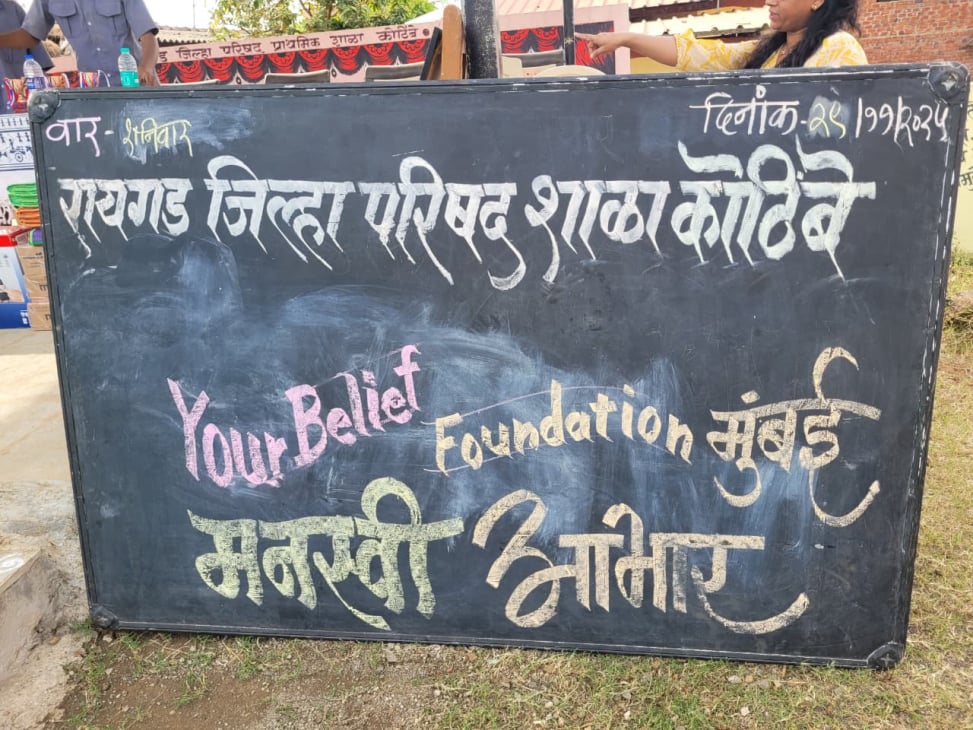 जिल्हा परिषद प्राथमिक शाळा कोठिंबे
वार - शनिवार
दिनांक - २९/११/२०२५
रायगड जिल्हा परिषद शाळा कोठिंबे
Your Belief Foundation मुंबई
मनस्वी आभार